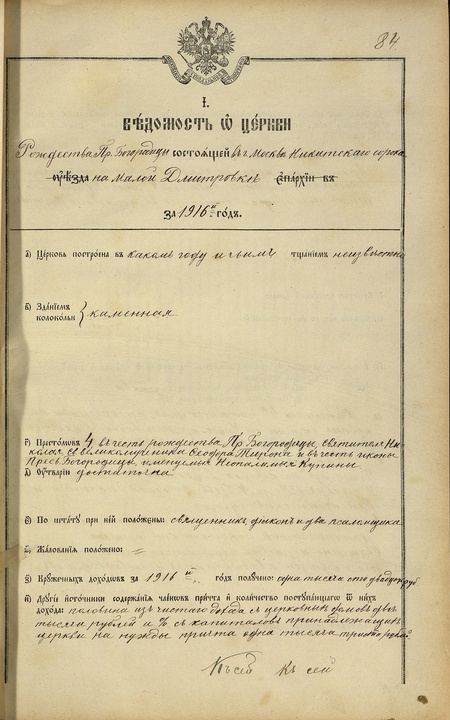 84
I.
ВѢДОМОСТЬ Ѡ ЦЕРКВИ
Рождества Пр. Богородицы СОСТОЯЩЕЙ въ г. Москвѣ Никитскаго сорока
на Малой Дмитровкѣ ЕПАРХІИ ВЪ
ЗА 1916й ГОДЪ.
а) Церковь построена въ какомъ году и чьимъ тщаніемъ неизвѣстно
в) Зданіемъ
колокольн } каменная
г) Престоловъ 4, въ честь рождества Пр. Богородицы, святителя Ни-
колая, св. великомученика Ѳеодора Тирона и въ честь иконы
Пресв. Богородицы, именуемыя Неопалимыя Купины
д) Утварію достаточна
е) По штату при ней положены: священникъ, діаконъ и два псаломщика
Жалованія положено: =
з) Кружечныхъ доходовъ за 1916й годъ получено: одна тысяча сто руб
и) Другіе источники содержанія членовъ причта и количество поступающаго ѿ нихъ
дохода: половина изъ чистаго дохода съ церковныхъ домовъ двѣ
тысячи рублей и % съ капиталовъ принадлежащихъ
церкви на нужды причта одна тысяча триста
Къ сей Къ сей